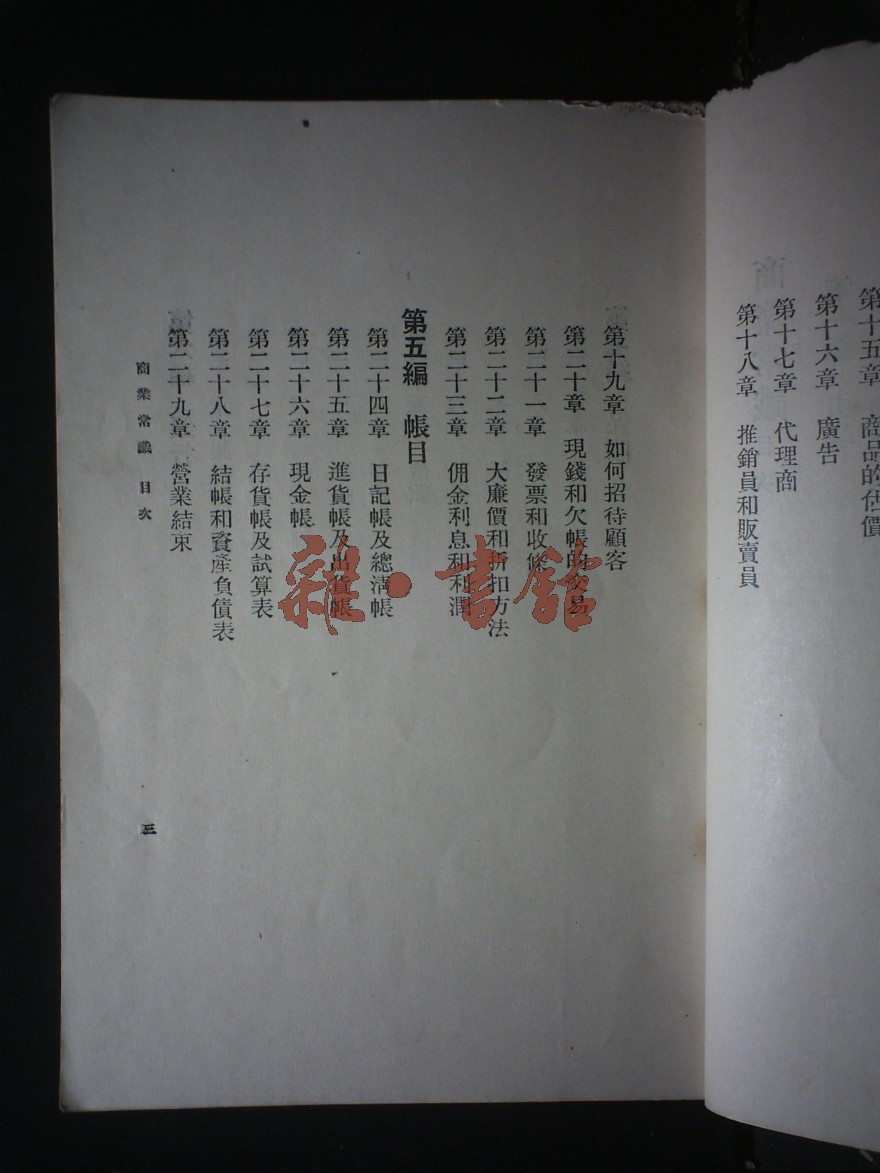 第十五章 商品的估價
第十六章 廣告
第十七章 代理商
第十八章 推銷員和販賣員
第十九章 如何招待顧客
第二十章 現錢和欠帳的交易
第二十一章 發票和收條
第二十二章 大廉價和折扣方法
第二十三章 佣金利息和利潤
第五編 帳目
第二十四章 日記帳及總清帳
第二十五章 進貨帳及出貨帳
第二十六章 現金帳
第二十七章 存貨帳及試算表
第二十八章 結帳和資產負債表
第二十九章 營業結束
商業常識 目次
三
雜·書館